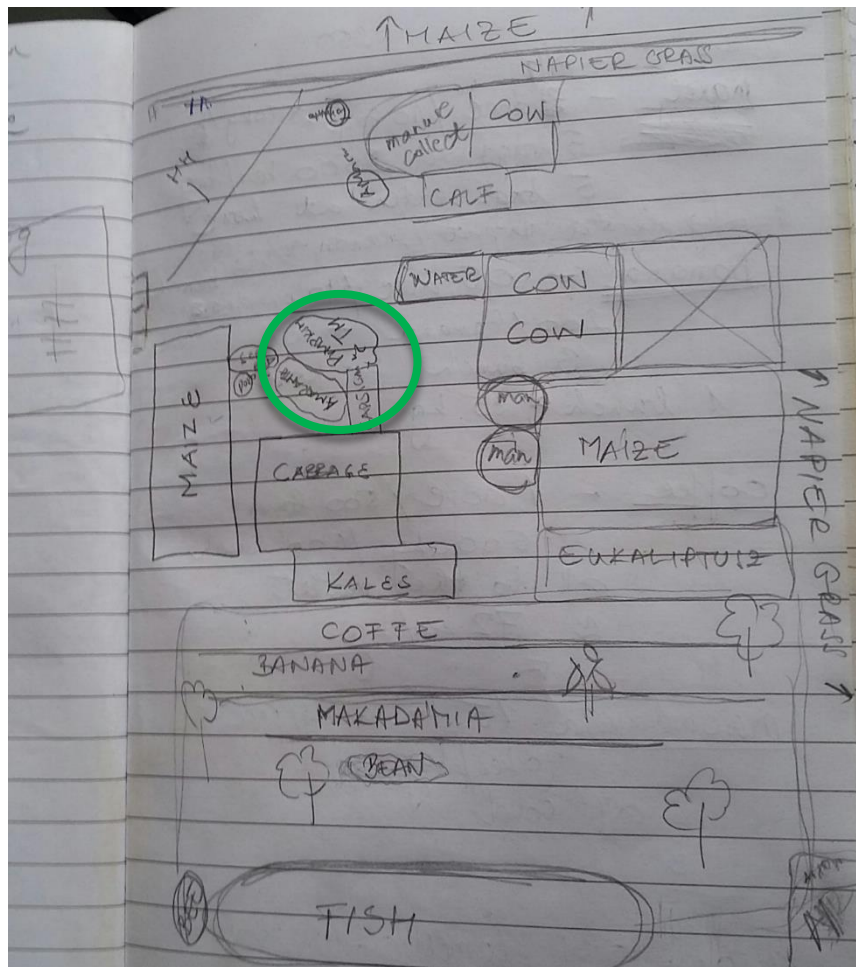 ↑ MAIZE ↑
NAPIER GRASS
manue collect
COW
CALF
WATER
COW
COW
PUMPKIN
MAIZE
man
man
MAIZE
CABBAGE
EUKALIPTUSZ
KALES
↑ NAPIER GRASS ↑
COFFE
BANANA
MAKADAMIA
BEAN
FISH